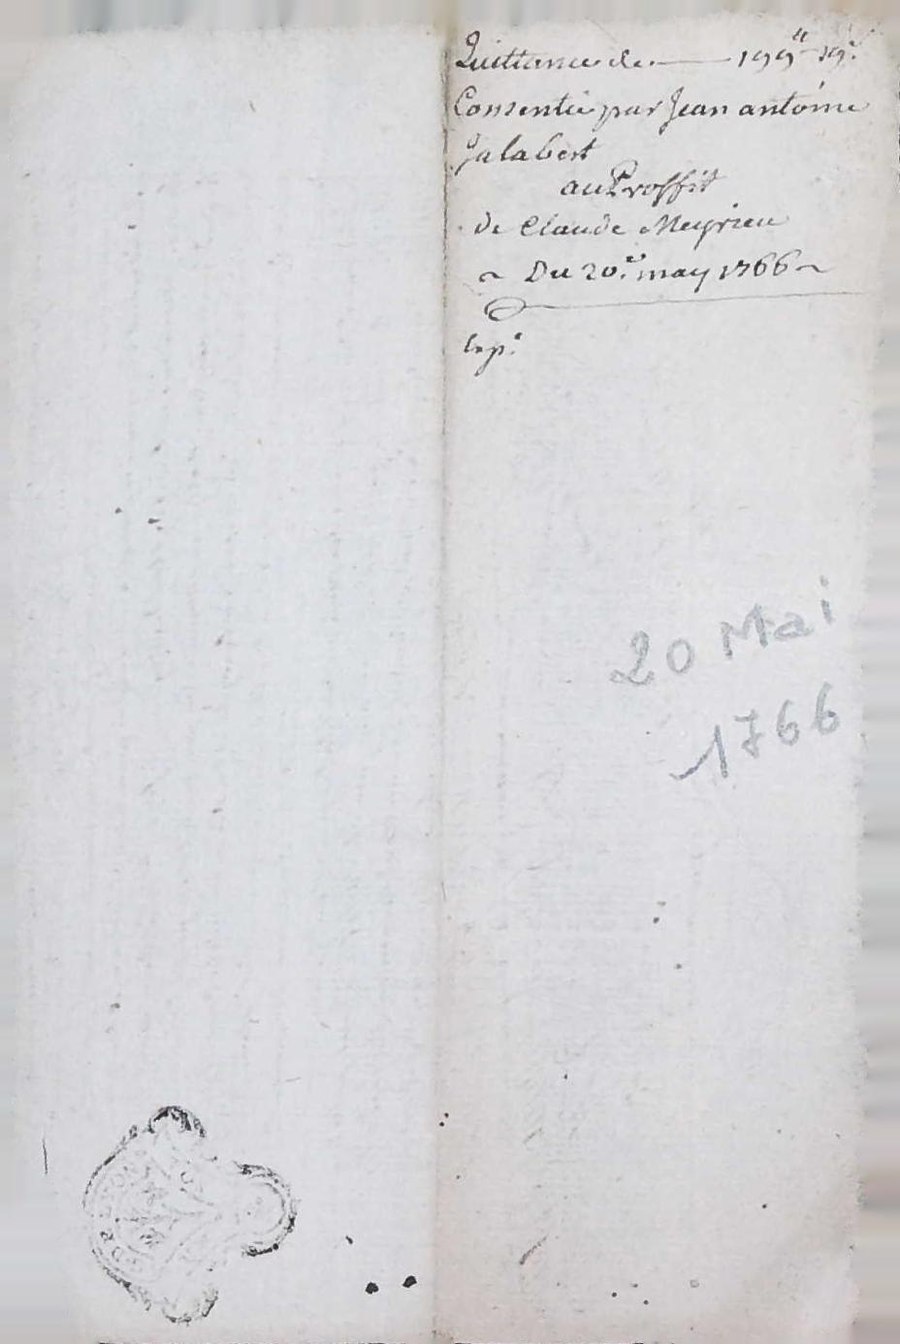 Quittance de — 199ᵗᵗ 19ˢ
Consentie par Jean antoine
Jalabert
au Proffit
de Claude Meyrieu
~ Du 20.ᵉ may 1766 ~
Exp.ᵉ
20 Mai
1766